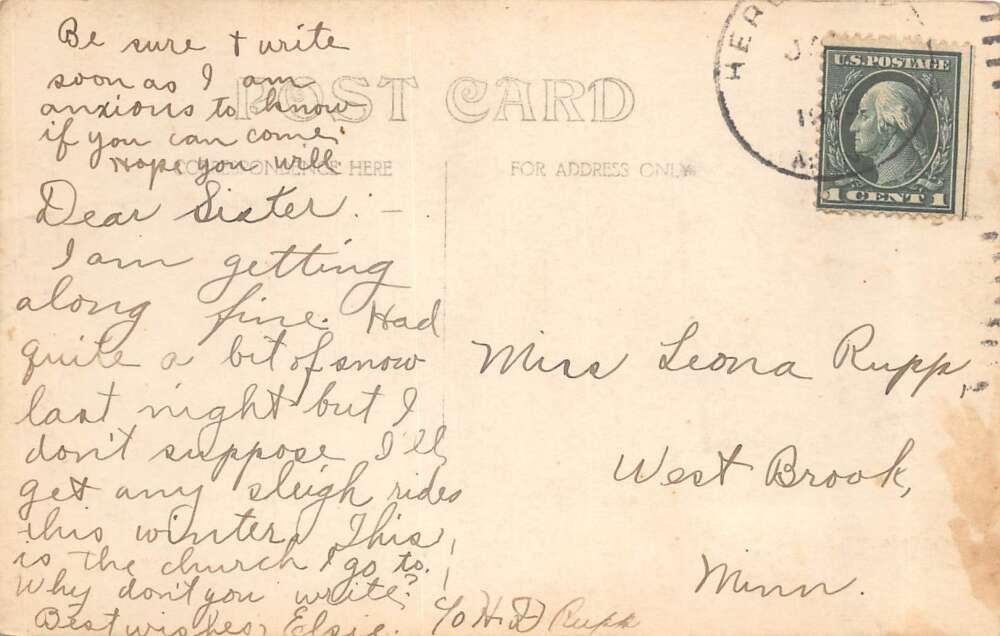 Be sure & write
soon as I am
anxious to know
if you can come.
Hope you will.
POST CARD
CORRESPONDENCE HERE
FOR ADDRESS ONLY
HER
JA
19
U.S. POSTAGE
1 CENT 1
Dear Sister: -
I am getting
along fine. Had
quite a bit of snow
last night but I
don't suppose I'll
get any sleigh rides
this winter. This
is the church I go to.
Why don't you write?
Best wishes, Elsie.
Miss Leona Rupp,
West Brook,
Minn.
c/o H D Rupp